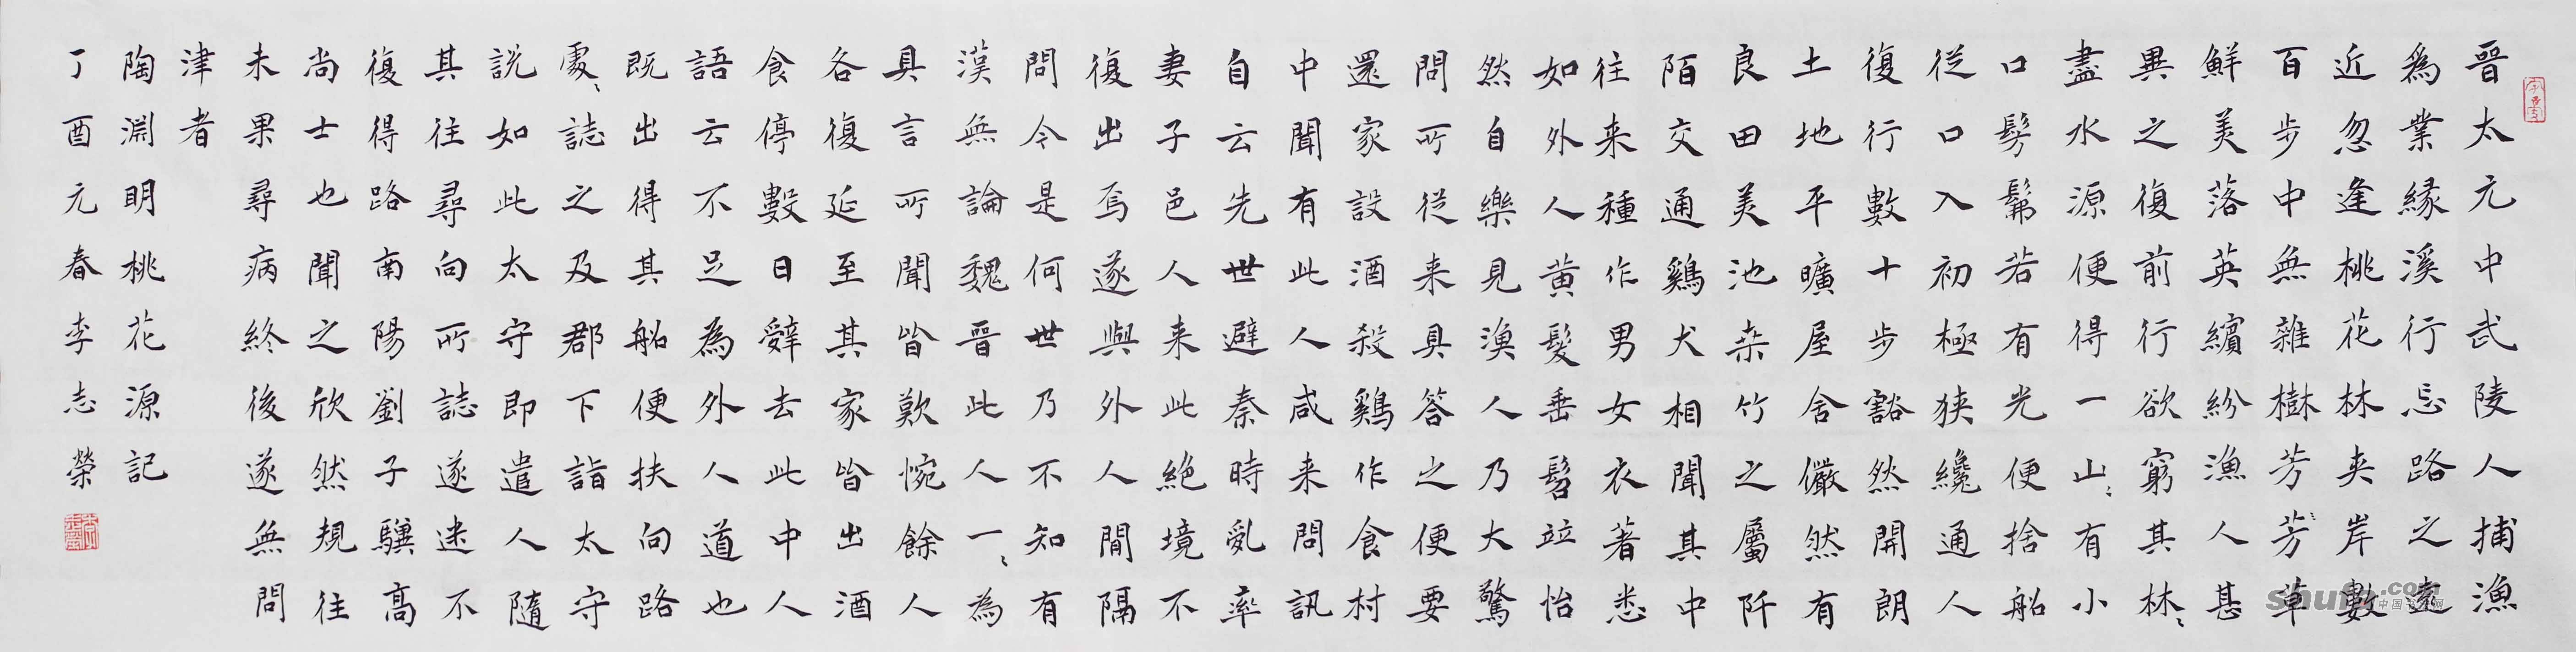 晉太元中武陵人捕漁
爲業縁溪行忘路之遠
近忽逢桃花林夾岸數
百步中無雜樹芳芳草
鮮美落英繽紛漁人甚
異之復前行欲窮其林〻
盡水源便得一山〻有小
口髣髴若有光便捨船
從口入初極狹纔通人
復行數十步豁然開朗
土地平曠屋舍儼然有
良田美池桒竹之屬阡
陌交通鷄犬相聞其中
往来種作男女衣著悉
如外人黄髮垂髫竝怡
然自樂見漁人乃大驚
問所從来具答之便要
還家設酒殺鷄作食村
中聞有此人咸来問訊
自云先世避秦時亂率
妻子邑人来此絶境不
復出焉遂與外人間隔
問今是何世乃不知有
漢無論魏晉此人一〻為
具言所聞皆歎惋餘人
各復延至其家皆出酒
食停數日辭去此中人
語云不足為外人道也
既出得其船便扶向路
處〻誌之及郡下詣太守
説如此太守即遣人隨
其往尋向所誌遂迷不
復得路南陽劉子驥高
尚士也聞之欣然規往
未果尋病終後遂無問
津者
陶淵明桃花源記
丁酉元春李志榮